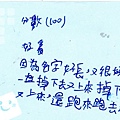 分數(100)
好看
因為名字好長,又很好
一直掉下去又上來掉下
又上來,還跑來跑去